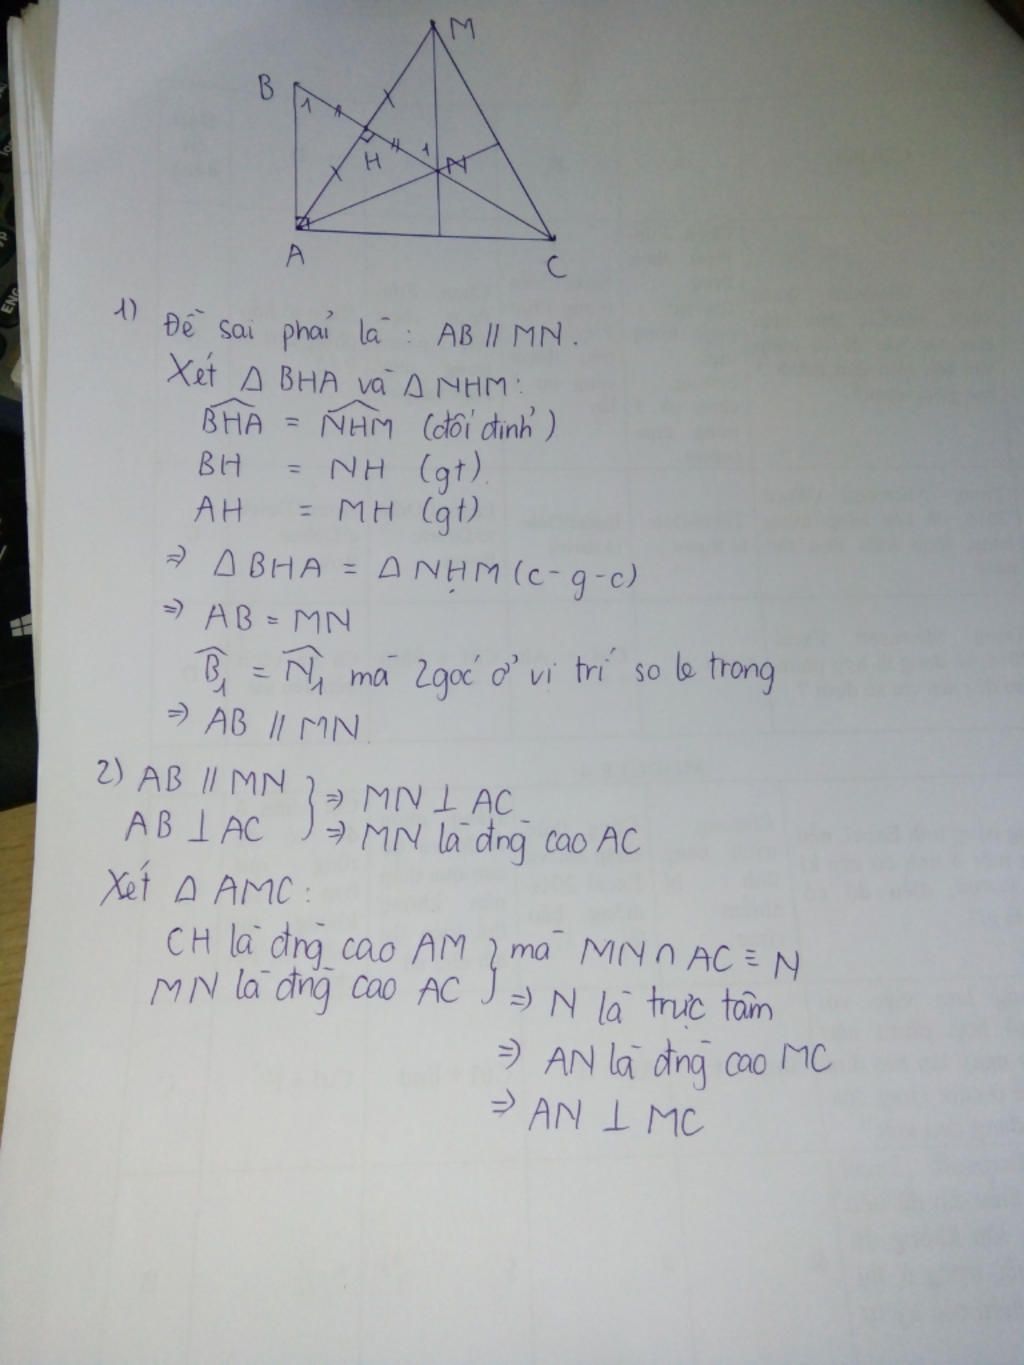 M
B
1
H
1
N
A
C
1) Đề sai phải là : AB // MN.
Xét Δ BHA và Δ NHM:
BHA = NHM (đối đỉnh)
BH = NH (gt).
AH = MH (gt)
⇒ Δ BHA = Δ NHM (c-g-c)
⇒ AB = MN
B̂₁ = N̂₁ mà 2 góc ở vị trí so le trong
⇒ AB // MN.
2) AB // MN } ⇒ MN ⊥ AC
AB ⊥ AC ⇒ MN là đng cao AC
Xét Δ AMC:
CH là đng cao AM } mà MN ∩ AC ≡ N
MN là đng cao AC ⇒ N là trực tâm
⇒ AN là đng cao MC
⇒ AN ⊥ MC